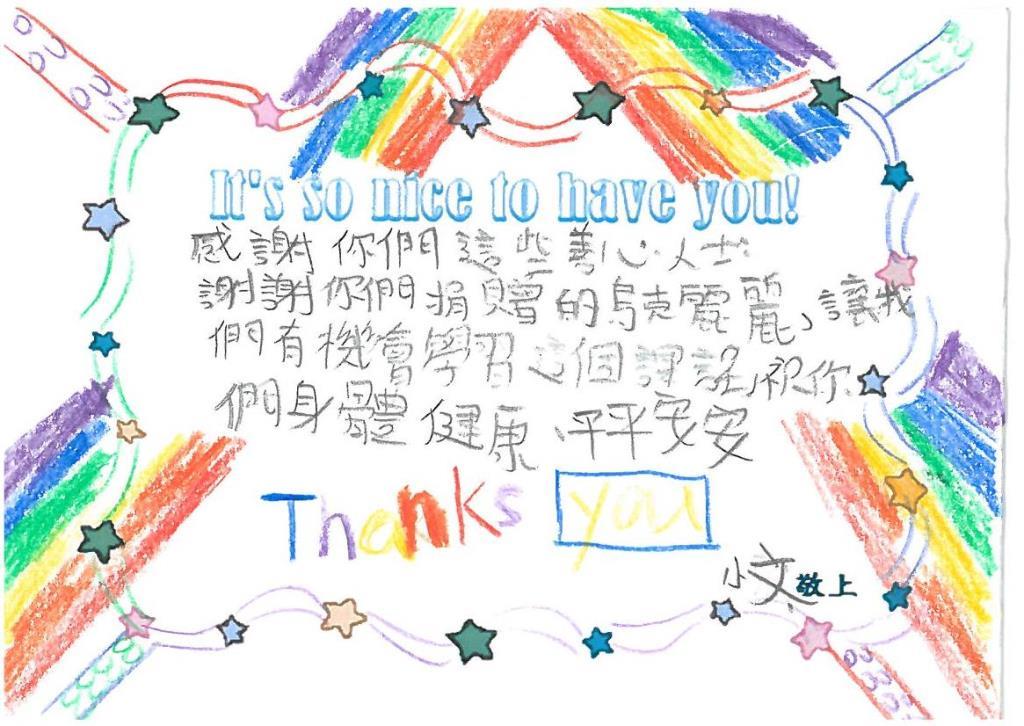 It's so nice to have you!
感謝你們這些善心人士
謝謝你們捐贈的烏克麗麗、讓我
們有機會學習這個課程,祝你
們身體健康、平平安安
Thanks you
小文敬上